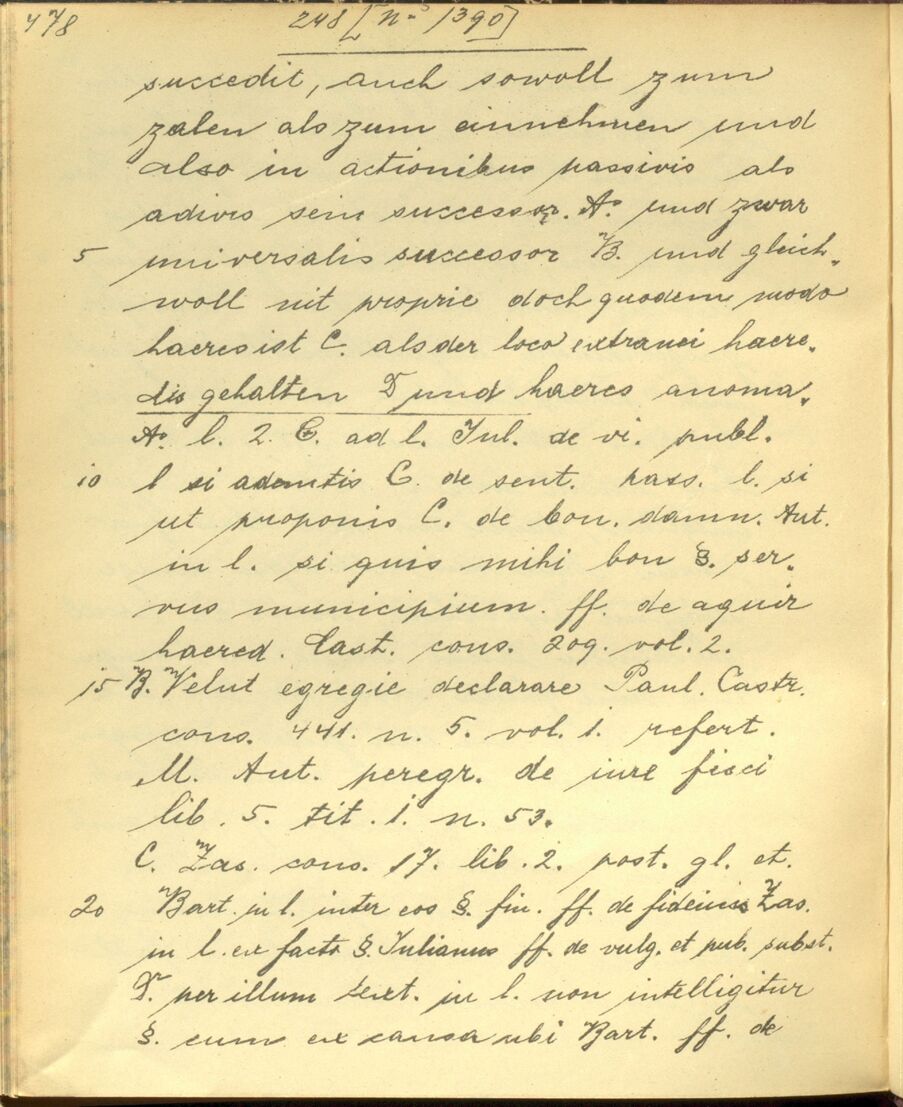 478 248 [No 1390]
succedit, auch sowoll zum
zalen als zum einnehmen und
also in actionibus passivis als
adivis sein successor. A. und zwar
5 universalis successor B. und gleich„
woll nit proprie doch quodem modo
haeres ist C. als der loco extranei haere„
dis gehalten D und haeres anoma„
A. l. 2. C. ad l. Iul. de vi. publ.
10 l si ademtis C. de sent. pass. l. si
ut proponis C. de bon. damn. Aut.
in l. si quis mihi bon §. ser„
vus municipium. ff. de aquir
haered. Cast. cons. 209. vol. 2.
15 B. Velut egregie declarare Paul. Castr.
cons. 441. n. 5. vol. 1. refert.
M. Ant. peregr. de iure fisci
lib. 5. tit. 1. n. 53.
C. Zas. cons. 17. lib. 2. post. gl. et.
20 Bart. in l. inter eos §. fin. ff. de fideiuss Zas.
in l. ex facto §. Iulianus ff. de vulg. et pub. subst.
D. per illum text. in l. non intelligitur
§. cum ex causa ubi Bart. ff. de